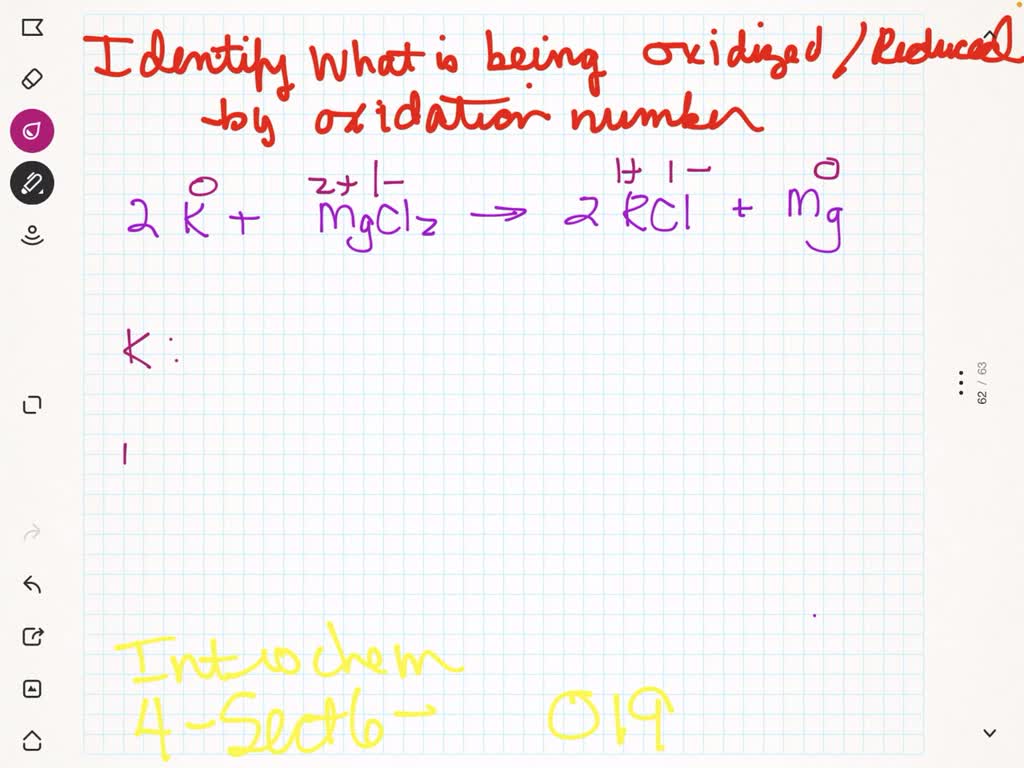 Identify What is being oxidized / Reduced
by oxidation number
0 2+ 1- 1+ 1- 0
2 K + MgCl2 → 2 KCl + Mg
K :
62 / 63
Introchem
4-Sect6- 019